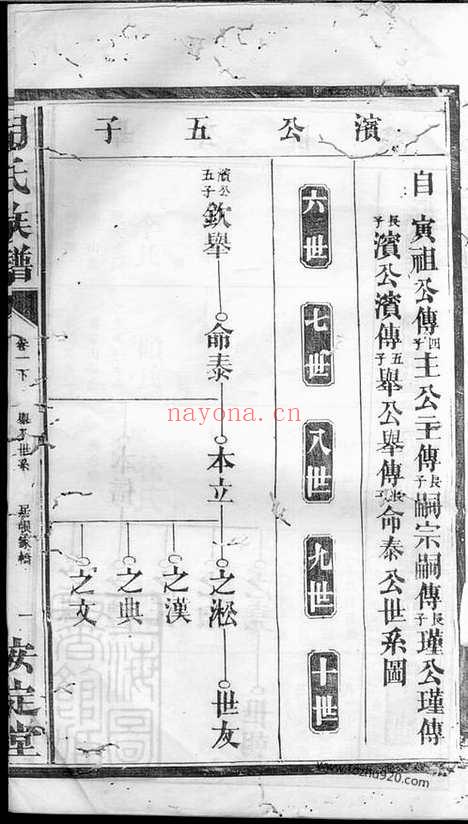 自寅祖公傳四子主公主傳長子嗣宗嗣傳長子瑾公瑾傳
長子濱公濱傳五子舉公舉傳長子命泰公世系圖
六世 七世 八世 九世 十世
濱公五子
濱公五子 欽舉 命泰 本立 之淞 世友
之漢
之典
之文
氏族譜
卷一下
安定堂
nayona.cn
www.fozhu920.com